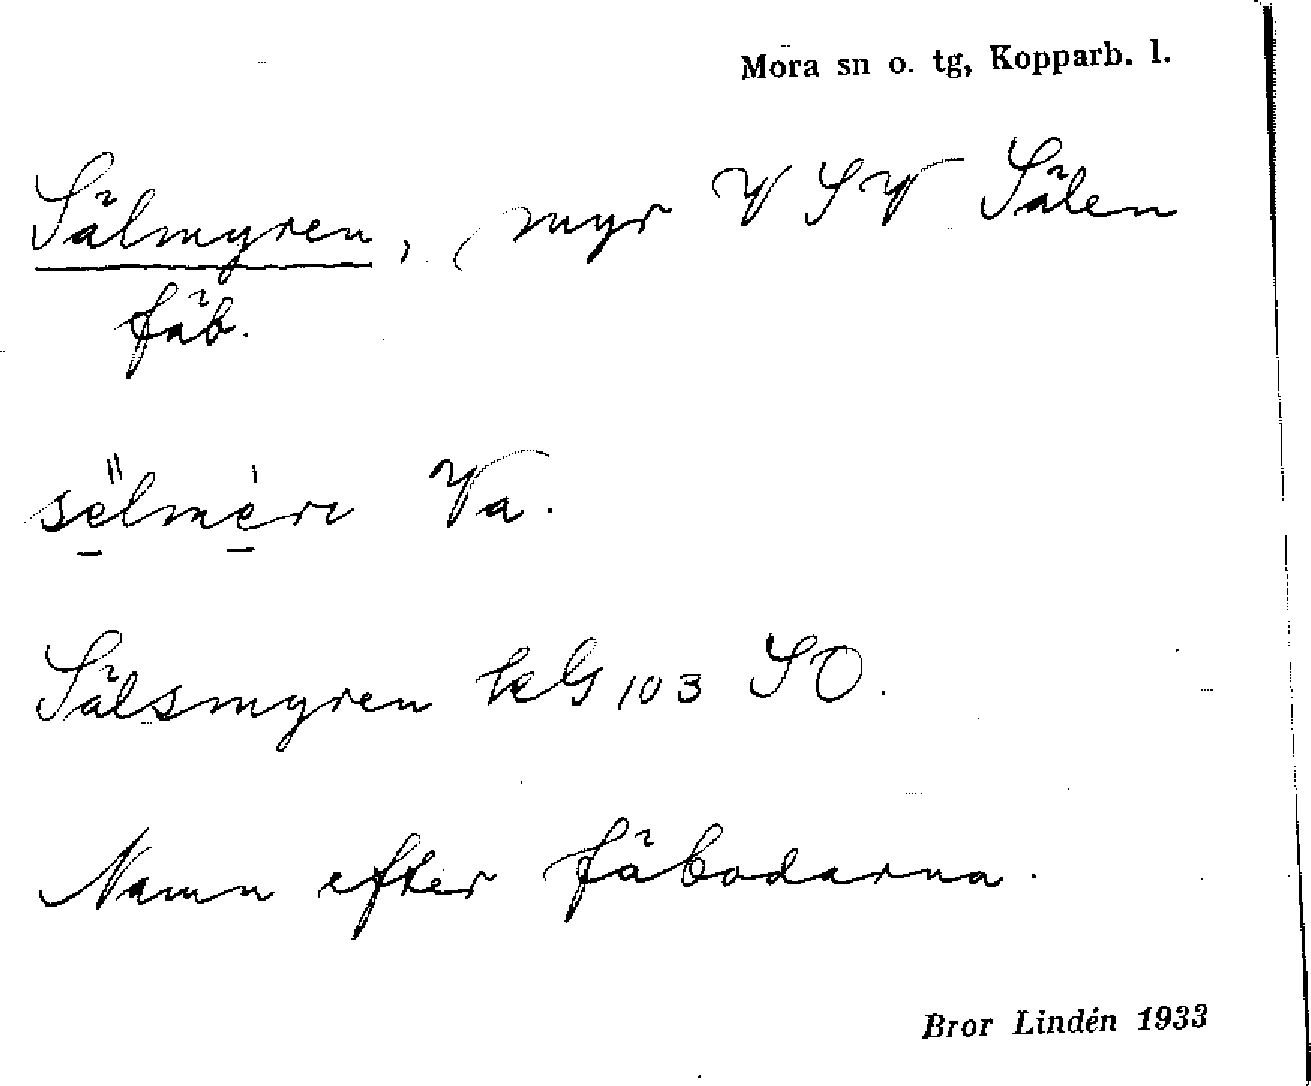 Mora sn o. tg, Kopparb. l.
Sälmyren, myr VSV Sälen
fäb.
sëlmèrı Va.
Sälsmyren kG 103 SO.
Namn efter fäbodarna.
Bror Lindén 1933